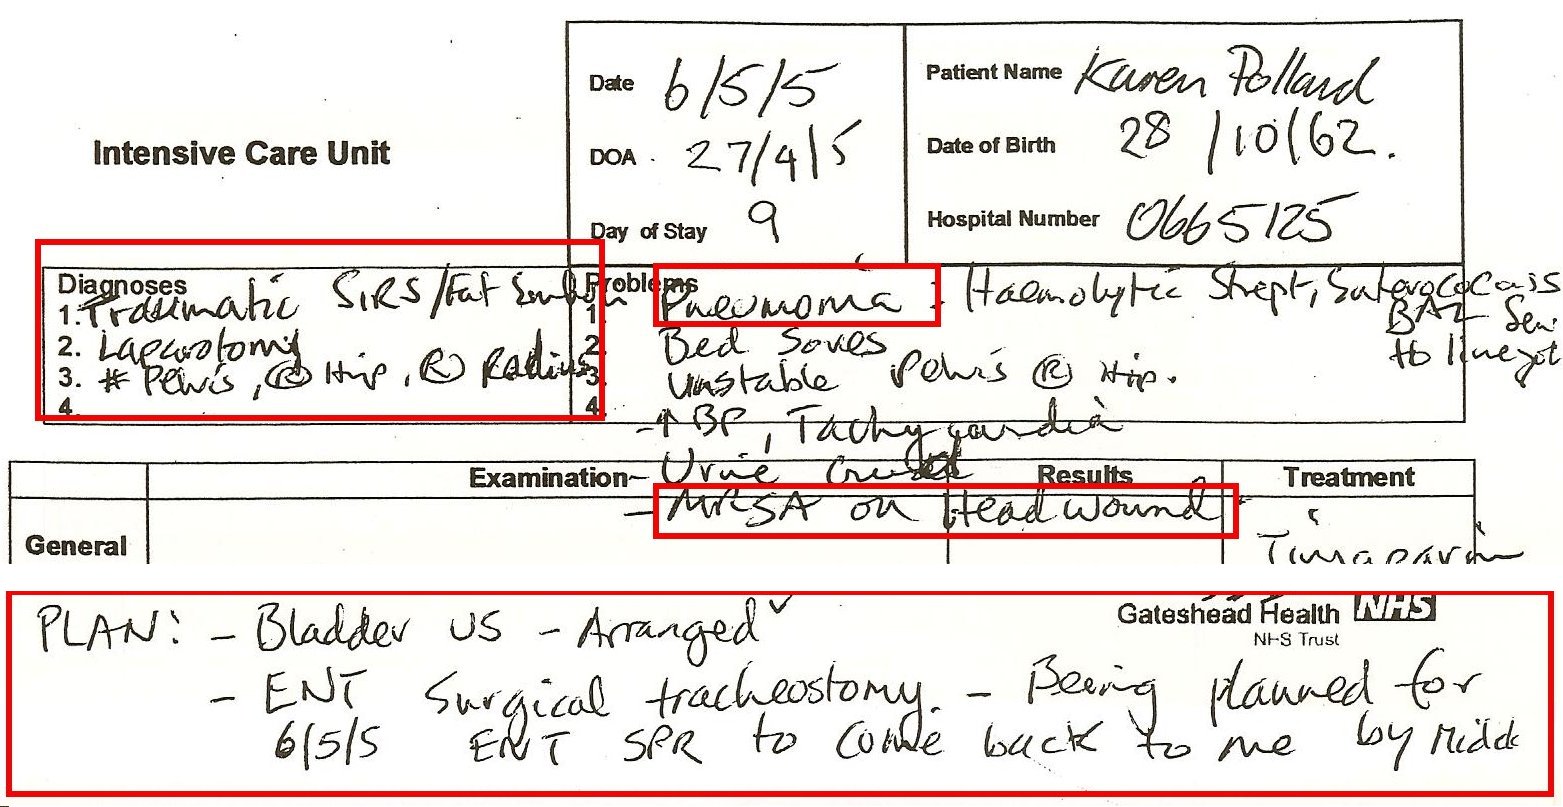 Date 6/5/5
Patient Name Karen Pollard
Intensive Care Unit
DOA 27/4/5
Date of Birth 28/10/62.
Day of Stay 9
Hospital Number 0665125
Diagnoses
1. Traumatic SIRS/Fat
2. Laparotomy
3. # Pelvis, (R) Hip, (R) Radius
4.
Problems
1. Pneumonia : Haemolytic Strept,
BAL
to
2. Bed Sores
3. Unstable Pelvis (R) Hip.
4.
- ↑ BP, Tachycardia
- Urine
- MRSA on Head wound
Examination Results Treatment
General
PLAN: - Bladder US - Arranged ✓
Gateshead Health NHS
NHS Trust
- ENT Surgical tracheostomy. - Being planned for
6/5/5 ENT SPR to come back to me by